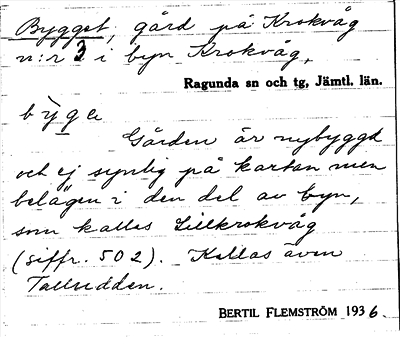 Bygget, gård på Krokvåg
n:r 3 i byn Krokvåg,
Ragunda sn och tg, Jämtl. län.
by̆ge
Gården är nybyggd
och ej synlig på kartan men
belägen i den del av byn,
som kallas Lillkrokvåg
(siffr. 502). Kallas även
Talludden.
BERTIL FLEMSTRÖM 1936.